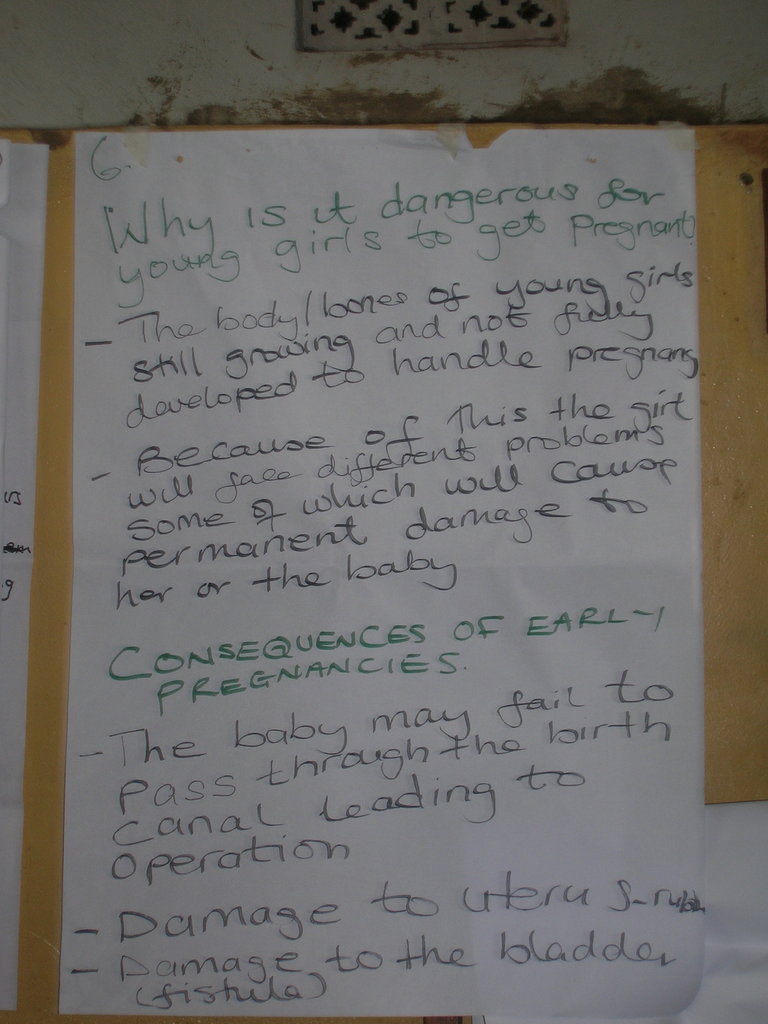 6.
Why is it dangerous for
young girls to get Pregnant
- The body/bones of young girls
still growing and not fully
developed to handle pregnancy
- Because of This the girl
will face different problems
some of which will cause
permanent damage to
her or the baby
CONSEQUENCES OF EARLY
PREGNANCIES.
- The baby may fail to
Pass through the birth
Canal leading to
operation
- Damage to uterus -
- Damage to the bladder
(fistula)
s
g